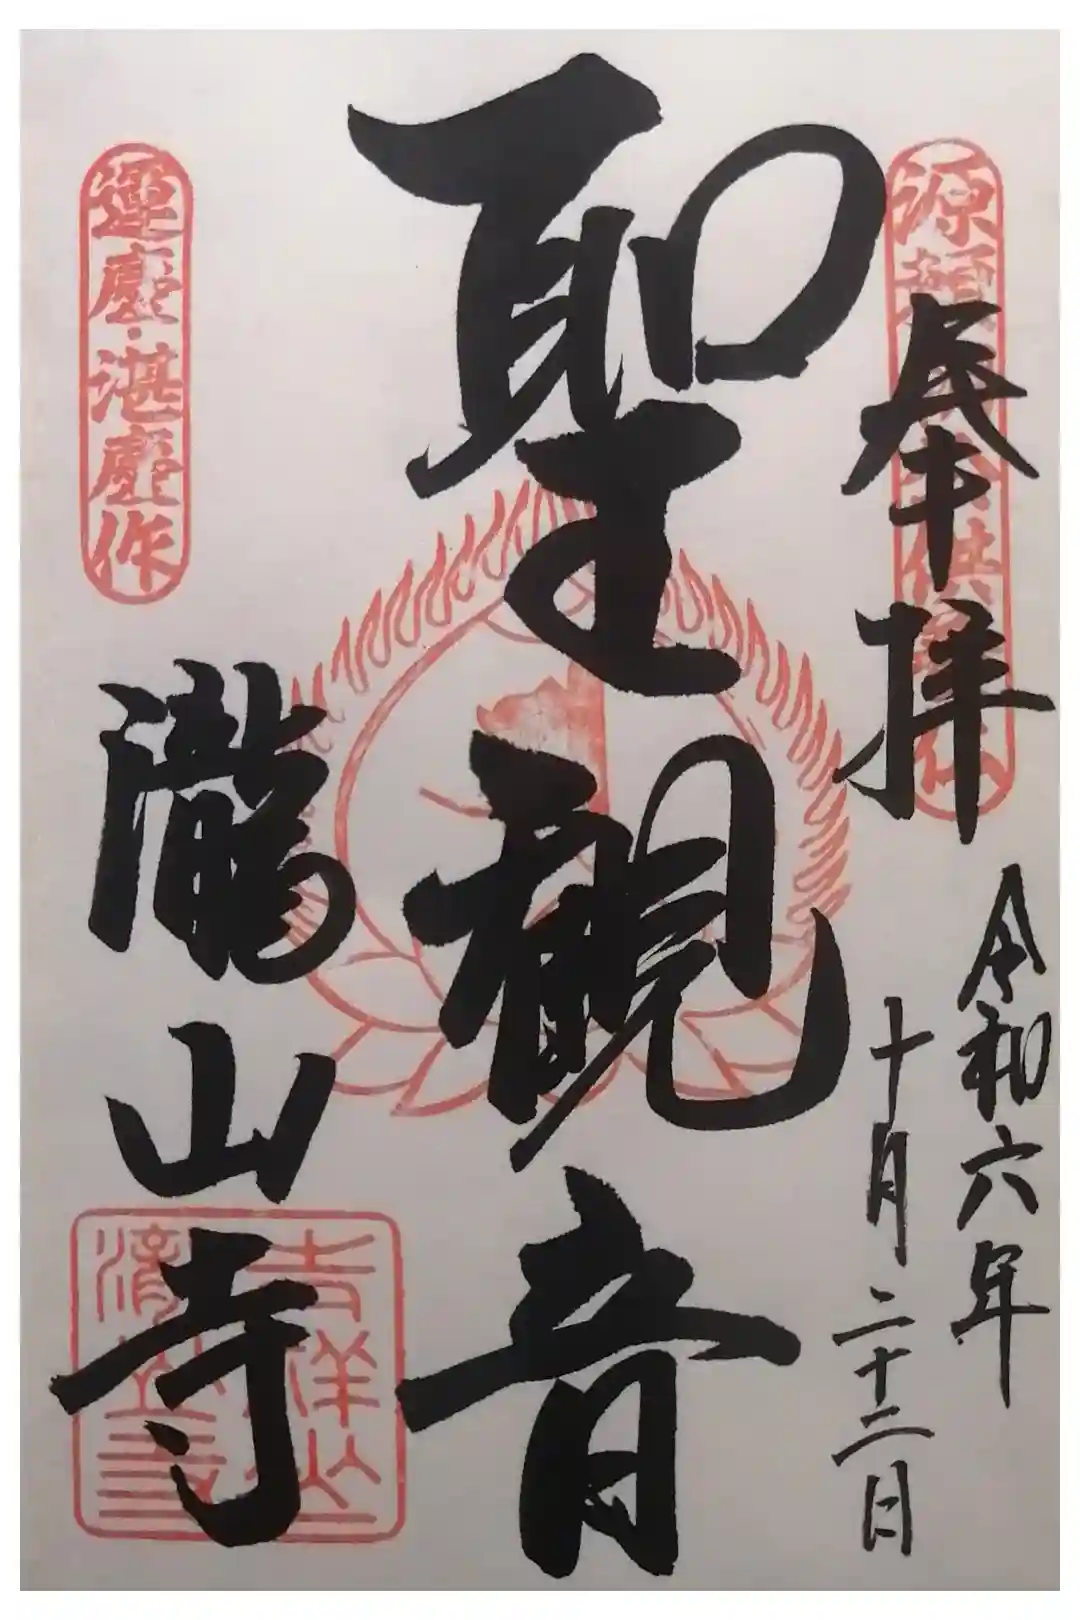 源頼朝公供養仏
奉拝
令和六年
十月二十三日
聖観音
運慶・湛慶作
瀧山寺
吉祥山